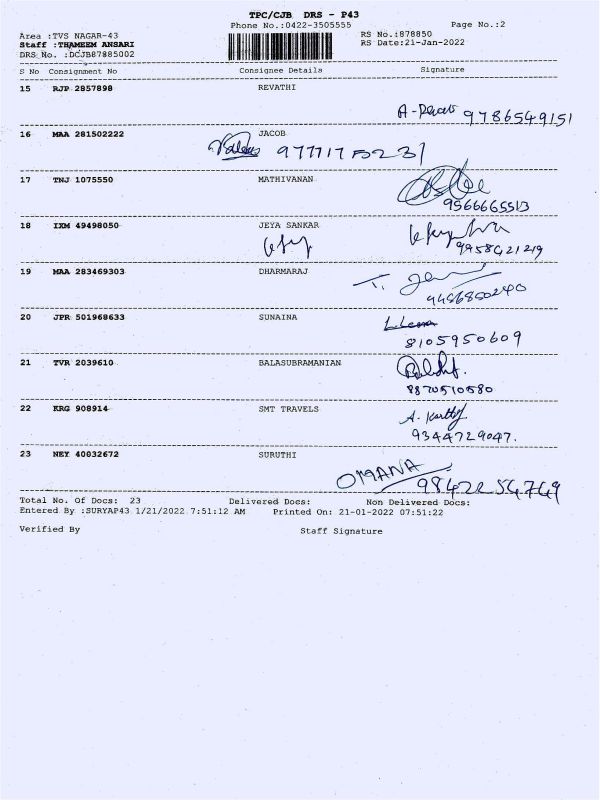 TPC/CJB DRS - P43
Phone No.:0422-3505555
Page No.:2
Area :TVS NAGAR-43
RS No.:878850
Staff :THAMEEM ANSARI
RS Date:21-Jan-2022
DRS No. :DCJB87885002
S No Consignment No Consignee Details Signature
15 RJP 2857898 REVATHI
9786549151
16 MAA 281502222 JACOB
17 TNJ 1075550 MATHIVANAN
9566665513
18 IXM 49498050 JEYA SANKAR
19 MAA 283469303 DHARMARAJ
20 JPR 501968633 SUNAINA
8105950609
21 TVR 2039610 BALASUBRAMANIAN
8870510580
22 KRG 908914 SMT TRAVELS
9344729047.
23 NEY 40032672 SURUTHI
OMANA
Total No. Of Docs: 23 Delivered Docs: Non Delivered Docs:
Entered By :SURYAP43 1/21/2022 7:51:12 AM Printed On: 21-01-2022 07:51:22
Verified By Staff Signature